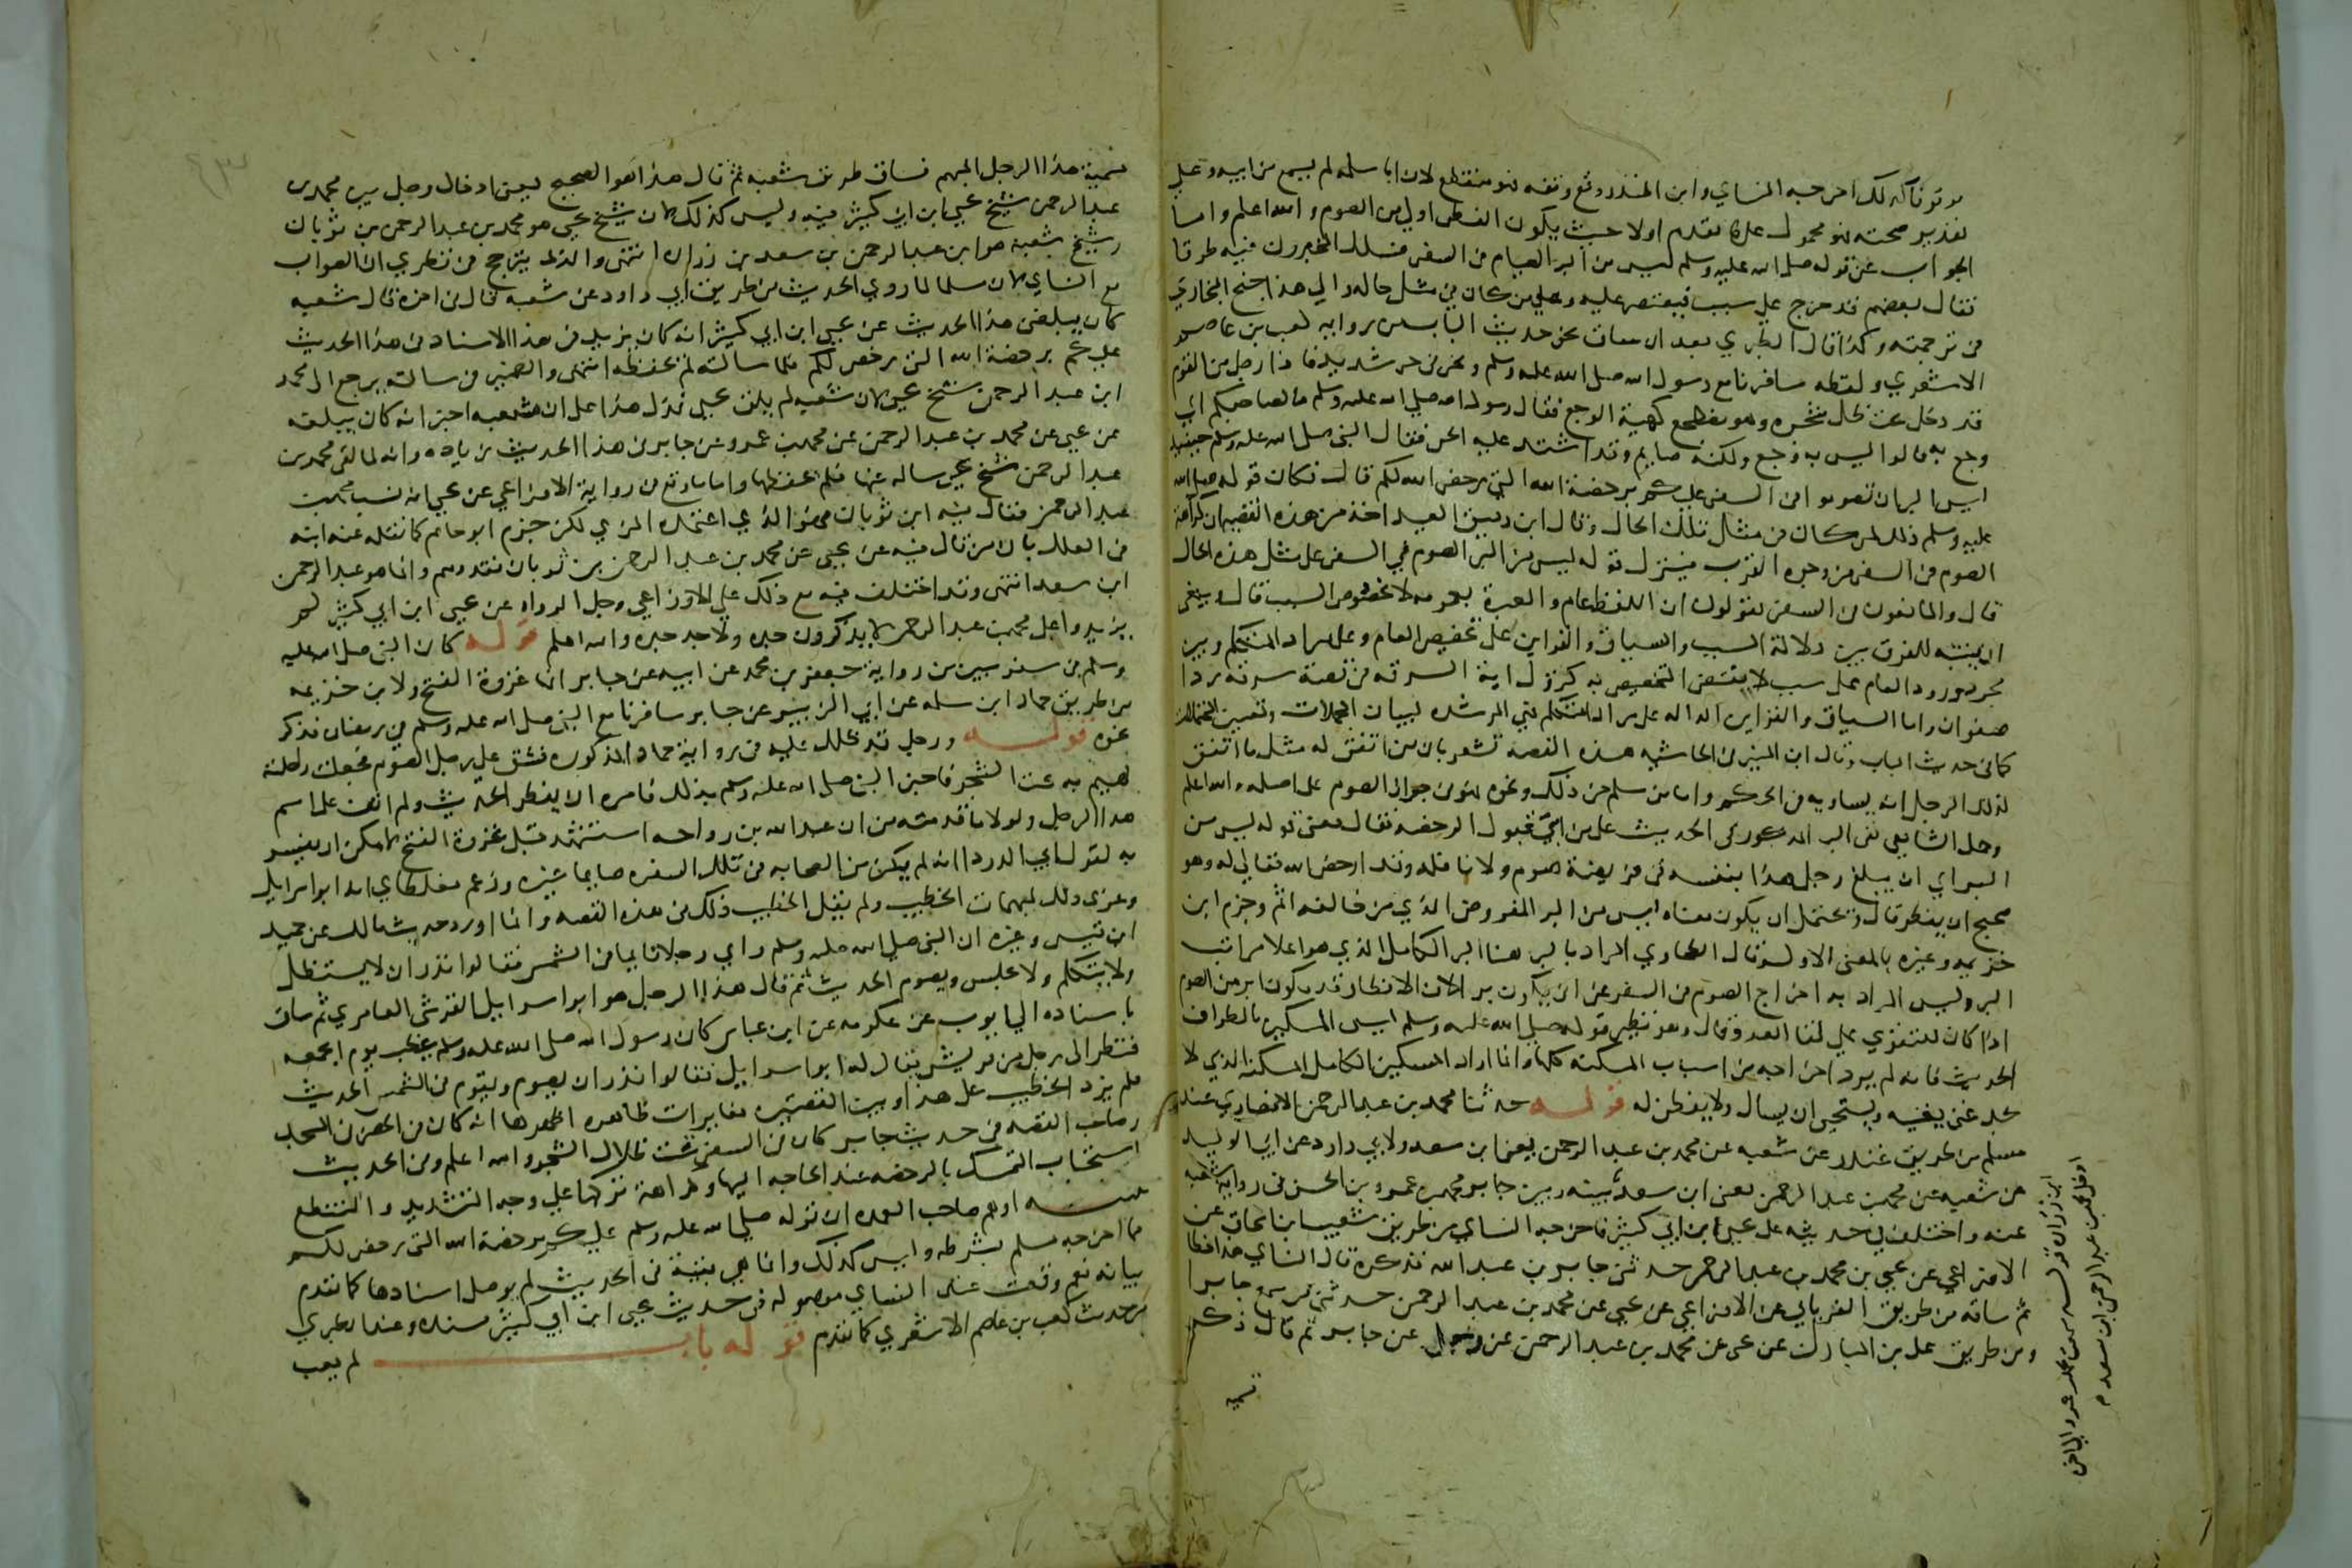 موقوفا كذلك اخرجه النساي وابن المنذر ووقع وقفه فهو منقطع لان ابا سلمة لم يسمع من ابيه وعلي
تقدير صحته فهو محمول علي ما تقدم اولا حيث يكون الفطر اولي من الصوم والله اعلم واما
الجواب عن قوله صلي الله عليه وسلم ليس من البر الصيام في السفر فسلك المجيزون فيه طرقا
فقال بعضهم قد خرج علي سبب فيقتصر عليه وعلي من كان في مثل حاله والي هذا جنح البخاري
في ترجمته وكذا قال الطبري بعد ان ساق نحو حديث الباب من رواية كعب بن عاصم
الاشعري ولفظه سافرنا مع رسول الله صلي الله عليه وسلم ونحن في حر شديد فاذا رجل من القوم
قد دخل تحت ظل شجره وهو مضطجع كهيئة الوجع فقال رسول الله صلي الله عليه وسلم ما لصاحبكم اي
وجع به قالوا ليس به وجع ولكنه صايم وقد اشتد عليه الحر فقال النبي صلي الله عليه وسلم حينيذ
ليس البر ان تصوموا في السفر عليكم برخصة الله التي رخص الله لكم قال فكان قوله صلي الله
عليه وسلم ذلك لمن كان في مثال تلك الحال وقال ابن دقيق العيد اخذ من هذه القصة ان كراهة
الصوم في السفر من وجوه القرب فينزل قوله ليس من البر الصوم في السفر علي مثل هذه الحال
قال والمانعون في السفر يقولون ان اللفظ عام والعبرة بعمومه لا بخصوص السبب قال وينبغي
ان يتنبه للفرق بين دلالة السبب والسياق والقراين علي تخصيص العام وعلي مراد المتكلم وبين
مجرد ورود العام علي سبب لا يقتضي التخصيص به كنزول اية السرقه في قصة سرقه ردا
صفوان واما السياق والقراين الداله علي مراد المتكلم فهي المرشده لبيان المجملات وتعيين المحتملات
كما في حديث الباب وقال ابن المنير في الحاشيه هذه القصه تشعر بان من اتفق له مثل ما اتفق
لذلك الرجل انه يساويه في الحكم واما من سلم من ذلك ونحوه فهو في جواز الصوم علي اصله والله اعلم
وحمل الشافعي نفي البر المذكور في الحديث علي من ابي قبول الرخصه فقال معني قوله ليس من
البر اي ان يبلغ رجل هذا بنفسه في فريضة صوم ولا نافلة وقد ارخص الله تعالي له وهو
صحيح ان يفطر قال ويحتمل ان يكون معناه ليس من البر المفروض الذي من خالفه اثم وجزم ابن
خزيمه وغيره بالمعني الاول وقال الطحاوي المراد بالبر هنا البر الكامل الذي هو اعلا مراتب
البر وليس المراد به اخراج الصوم في السفر عن ان يكون برا لان الافطار قد يكون ابر من الصوم
اذا كان للتقوي علي لقا العدو قال وهو نظير قوله صلي الله عليه وسلم ليس المسكين بالطواف
الحديث فانه لم يرد اخراجه من اسباب المسكنه كلها وانما اراد المسكين الكامل المسكنه الذي لا
يجد غني يغنيه ويستحيي ان يسال ولا يفطن له قوله حدثنا محمد بن عبد الرحمن الانصاري عند
مسلم من طريق غندر عن شعبه عن محمد بن عبد الرحمن يعني ابن سعد ولابي داود عن ابي الوليد
عن شعبه عن محمد بن عبد الرحمن يعني ابن سعد بينه وبين جابر محمد بن عمرو بن الحسن في رواية شعبه
عنه واختلف في حديثه علي يحيي ابن ابي كثير فاخرجه النساي من طريق شعيب ابن اسحاق عن
الاوزاعي عن يحيي بن محمد بن عبد الرحمن حدثني جابر بن عبد الله فذكره قال النساي هذا خطا
ثم ساقه من طريق الفريابي عن الاوزاعي عن يحيي عن محمد بن عبد الرحمن حدثني من سمع جابرا
ومن طريق علي بن المبارك عن يحيي عن محمد بن عبد الرحمن عن رجل عن جابر ثم قال ذكر
تسميه
تسمية هذا الرجل المبهم فساق طريق شعبه ثم قال هذا هو الصحيح يعني ادخال رجل بين محمد بن
عبد الرحمن شيخ يحيي ابن ابي كثير فيه وليس كذلك لان شيخ يحيي هو محمد بن عبد الرحمن بن ثوبان
وشيخ شعبه هو ابن عبد الرحمن بن سعد بن زراره انتهي والذي يترجح في نظري ان الصواب
مع النساي لان مسلما لما روي الحديث من طريق ابي داود عن شعبه قال في اخره قال شعبه
كان يبلغني هذا الحديث عن يحيي ابن ابي كثير انه كان يزيد في هذا الاسناد في هذا الحديث
عليكم برخصة الله التي رخص لكم فلما سالته لم يحفظه انتهي والضمير في سالته يرجع الي محمد
ابن عبد الرحمن شيخ يحيي لان شعبه لم يلق يحيي فدل هذا علي ان شعبه اخبر انه كان يبلغه
عن يحيي عن محمد بن عبد الرحمن عن محمد بن عمرو عن جابر في هذا الحديث زياده وانه لما لقي محمد بن
عبد الرحمن شيخ يحيي ساله عنها فلم يحفظها واما ما وقع في رواية الاوزاعي عن يحيي انه نسب محمد بن
عبد الرحمن فقال فيه ابن ثوبان فهو الذي اعتمده المزي لكن جزم ابو حاتم كما نقله عنه ابنه
في العلل بان من قال فيه عن يحيي عن محمد بن عبد الرحمن بن ثوبان فقد وهم وانما هو عبد الرحمن
ابن سعد انتهي وقد اختلف فيه مع ذلك علي الاوزاعي وجل الرواه عن يحيي ابن ابي كثير لم
يزيدوا علي محمد بن عبد الرحمن لا يذكرون جده ولا جد جده والله اعلم قوله كان النبي صلي الله عليه
وسلم في سفر تبين من رواية جعفر بن محمد عن ابيه عن جابر انها غزوة الفتح ولابن خزيمه
من طريق حماد ابن سلمه عن ابي الزبير عن جابر سافرنا مع النبي صلي الله عليه وسلم في رمضان فذكر
نحوه قوله ورجل قد ظلل عليه في رواية حماد المذكوره فشق علي رجل الصوم فجعلت راحلته
تهيم به تحت الشجر فاخبر النبي صلي الله عليه وسلم بذلك فامره ان يفطر الحديث ولم اقف علي اسم
هذا الرجل ولولا ما قدمته من ان عبد الله بن رواحه استشهد قبل غزوة الفتح لامكن ان يفسر
به لقول ابي الدردا انه لم يكن من الصحابه في تلك السفره صايما غيره وزعم مغلطاي انه ابو اسرايل
وعزي ذلك لمبهمات الخطيب ولم يقل الخطيب ذلك في هذه القصه وانما اورد حديث مالك عن حميد
ابن قيس وغيره ان النبي صلي الله عليه وسلم راي رجلا قايما في الشمس فقالوا نذر ان لا يستظل
ولا يتكلم ولا يجلس ويصوم الحديث ثم قال هذا الرجل هو ابو اسرايل القرشي العامري ثم ساق
باسناده الي ايوب عن عكرمه عن ابن عباس كان رسول الله صلي الله عليه وسلم يخطب يوم الجمعه
فنظر الي رجل من قريش يقال له ابو اسرايل فقالوا نذر ان يصوم ويقوم في الشمس الحديث
فلم يزد الخطيب علي هذا وبين القصتين مغايرات ظاهره اظهرها انه كان في الحضر في المسجد
وصاحب القصه في حديث جابر كان في السفر تحت ظلال الشجر والله اعلم وفي الحديث
استحباب التمسك بالرخصه عند الحاجه اليها وكراهة تركها علي وجه التشديد والتنطع
تنبيه اوهم صاحب العمده ان قوله صلي الله عليه وسلم عليكم برخصة الله التي رخص لكم
مما اخرجه مسلم بشرطه وليس كذلك وانما هي بقية في الحديث لم يوصل اسنادها كما تقدم
بيانه نعم وقعت عند النساي موصوله في حديث يحيي ابن ابي كثير بسنده وعند الطبري
من حديث كعب بن عاصم الاشعري كما تقدم قوله باب لم يعب